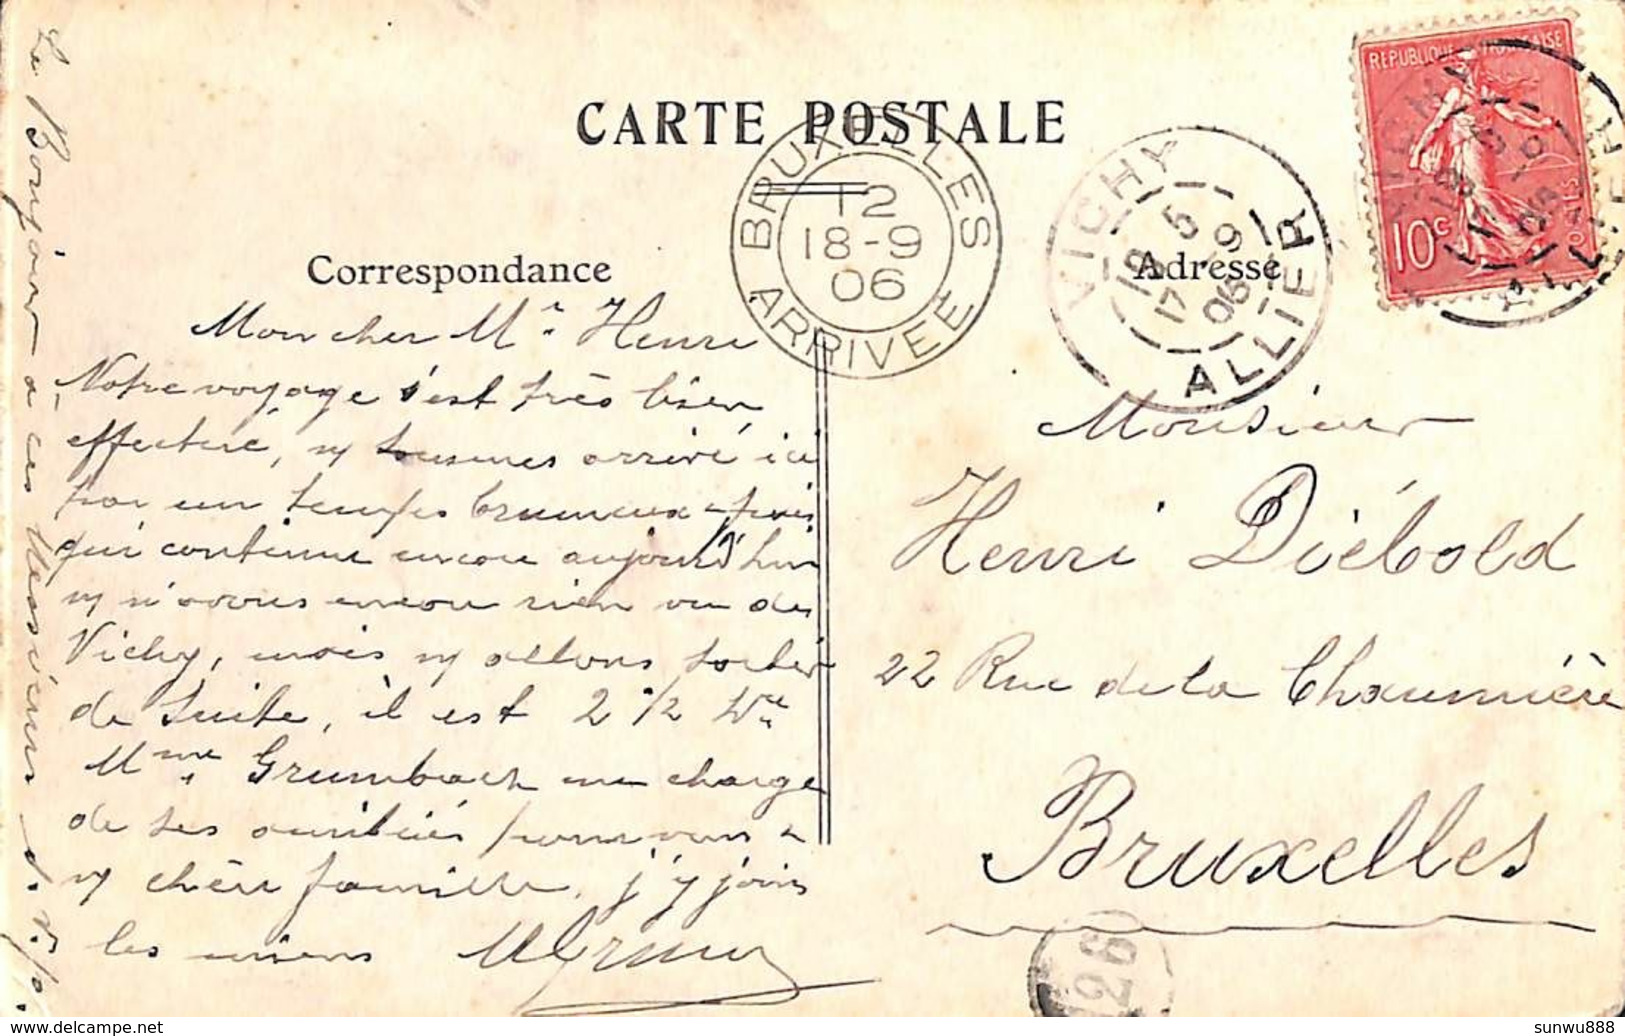 CARTE POSTALE
Correspondance
Adresse
BRUXELLES
12
18-9
06
ARRIVEE
VICHY
17 9
06
ALLIER
REPUBLIQUE FRANCAISE
10c
POSTES
Mon cher Mr. Henri
Notre voyage s'est très bien
effectué, ns sommes arrivé ici
par un temps brumeux
qui continue encore aujourd'hui
ns n'avons encore rien vu de
Vichy, mais ns allons sortir
de suite, il est 2 1/2 hre
Mme Grumbach me charge
de ses amitiés pour vous &
vs chère famille, j'y joins
les miens
Le Bonjour a ces Messieurs s. v. p.
Monsieur
Henri Diébold
22 Rue de la Chaumière
Bruxelles
26
www.delcampe.net
sunwu888